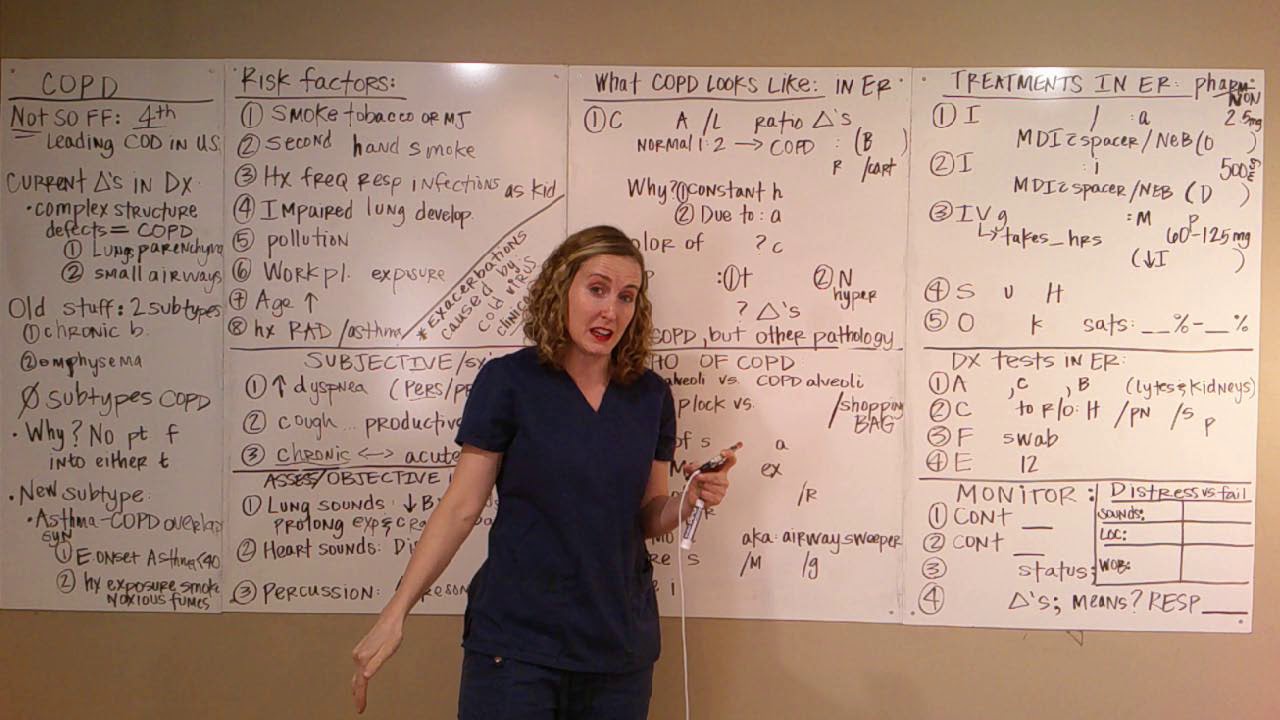 COPD
NOT SO FF: 4th
Leading COD IN US
CURRENT Δ's IN DX
• complex structure
defects = COPD
① Lungs parenchyma
② small airways
Old stuff: 2 subtypes
① chronic b.
② emphysema
Ø subtypes COPD
• Why? No pt f
into either t
• New subtype:
• Asthma-COPD overlap
syn
① E.onset Asthma <40
② hx exposure smoke
noxious fumes
Risk factors:
① Smoke tobacco OR MJ
② Second hand smoke
③ Hx freq Resp infections as kid
④ Impaired lung develop.
⑤ pollution
⑥ Workpl. exposure
⑦ Age ↑
⑧ hx RAD /asthma
* Exacerbations
caused by:
cold virus
SUBJECTIVE/
① ↑ dyspnea (PERS/
② cough... productiv
③ chronic <-> acute
ASSESS/OBJECTIVE
① Lung sounds: ↓ B
prolong exp &
② Heart sounds: Di
③ Percussion:
What COPD LOOKS LIKE: IN ER
① C A/L ratio Δ's
NORMAL 1:2 → COPD : (B )
R /cart
Why? ① constant h
② Due to: a
olor of ? c
P : ① t ② N
hyper
? Δ's
COPD, but other pathology
HO OF COPD
alveoli vs. COPD alveoli
plock vs. /shopping
BAG
of s a
ex
/R
aka: airway sweeper
re s /M /g
TREATMENTS IN ER: pharm:
NON
① I / : a 2.5mg
MDI c̄ spacer/NEB (D )
② I : i 500
MDI c̄ spacer/NEB (D )
③ IV g : M P
↳ takes _ hrs 60-125mg
(↓I )
④ S u H
⑤ O k sats: __%-__%
DX tests IN ER:
① A , C , B (lytes & kidneys)
② C to R/O: H /PN /S P
③ F swab
④ E 12
MONITOR:
① CONT __
② CONT __
③ status:
④ Δ's; means? RESP ____
Distress vs fail
SOUNDS:
LOC:
WOB: